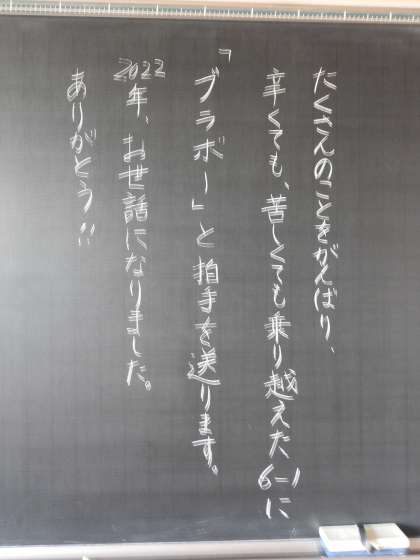 たくさんのことをがんばり、
辛くても、苦しくても乗り越えた6-1に
「ブラボー」と拍手を送ります。
2022年、お世話になりました。
ありがとう!!